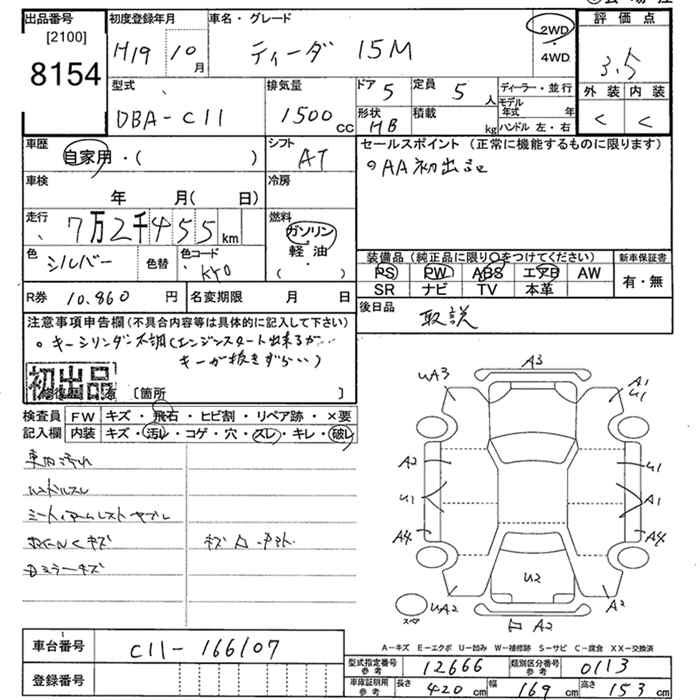 出品番号 [2100] 8154
初度登録年月 H19 10月
車名・グレード ティーダ 15M
2WD・4WD
評価点 3.5
外装 内装
< <
型式 DBA-C11
排気量 1500cc
ドア 5 定員 5人
形状 HB 積載 kg
ディーラー・並行
モデル年式 年
ハンドル 左・右
車歴 自家用・( )
シフト AT
セールスポイント(正常に機能するものに限ります)
○AA初出品
車検 年 月( 日)
冷房
走行 7万2千455km
燃料 ガソリン 軽油 ( ・ )
色 シルバー 色替 色コード KY0
装備品(純正品に限り○をつけてください) 新車保証書
PS PW ABS エアB AW 有・無
SR ナビ TV 本革
R券 10.860円 名変期限 月 日
後日品 取説
注意事項申告欄(不具合内容等は具体的に記入して下さい)
○キーシリンダー不調(エンジンスタート出来るが
キーが抜きずらい)
初出品 有 [箇所 ]
検査員 FW キズ・飛石・ヒビ割・リペア跡・×要
記入欄 内装 キズ・汚レ・コゲ・穴・スレ・キレ・破レ
車内汚れ
ハンドルスレ
シートアームレストヤブレ
キズ
ミラーキズ
A3
UA3
A1
U1
A2
U1
U1
A1
A4
A4
U2
UA2
A2
A2
スペア
A-キズ E-エクボ U-凹み W-補修跡 S-サビ C-腐食 XX-交換済
車台番号 C11-166107
登録番号
型式指定番号 参考 12666 類別区分番号 参考 0113
車庫証明用 参考 長さ 420cm 幅 169cm 高さ 153cm